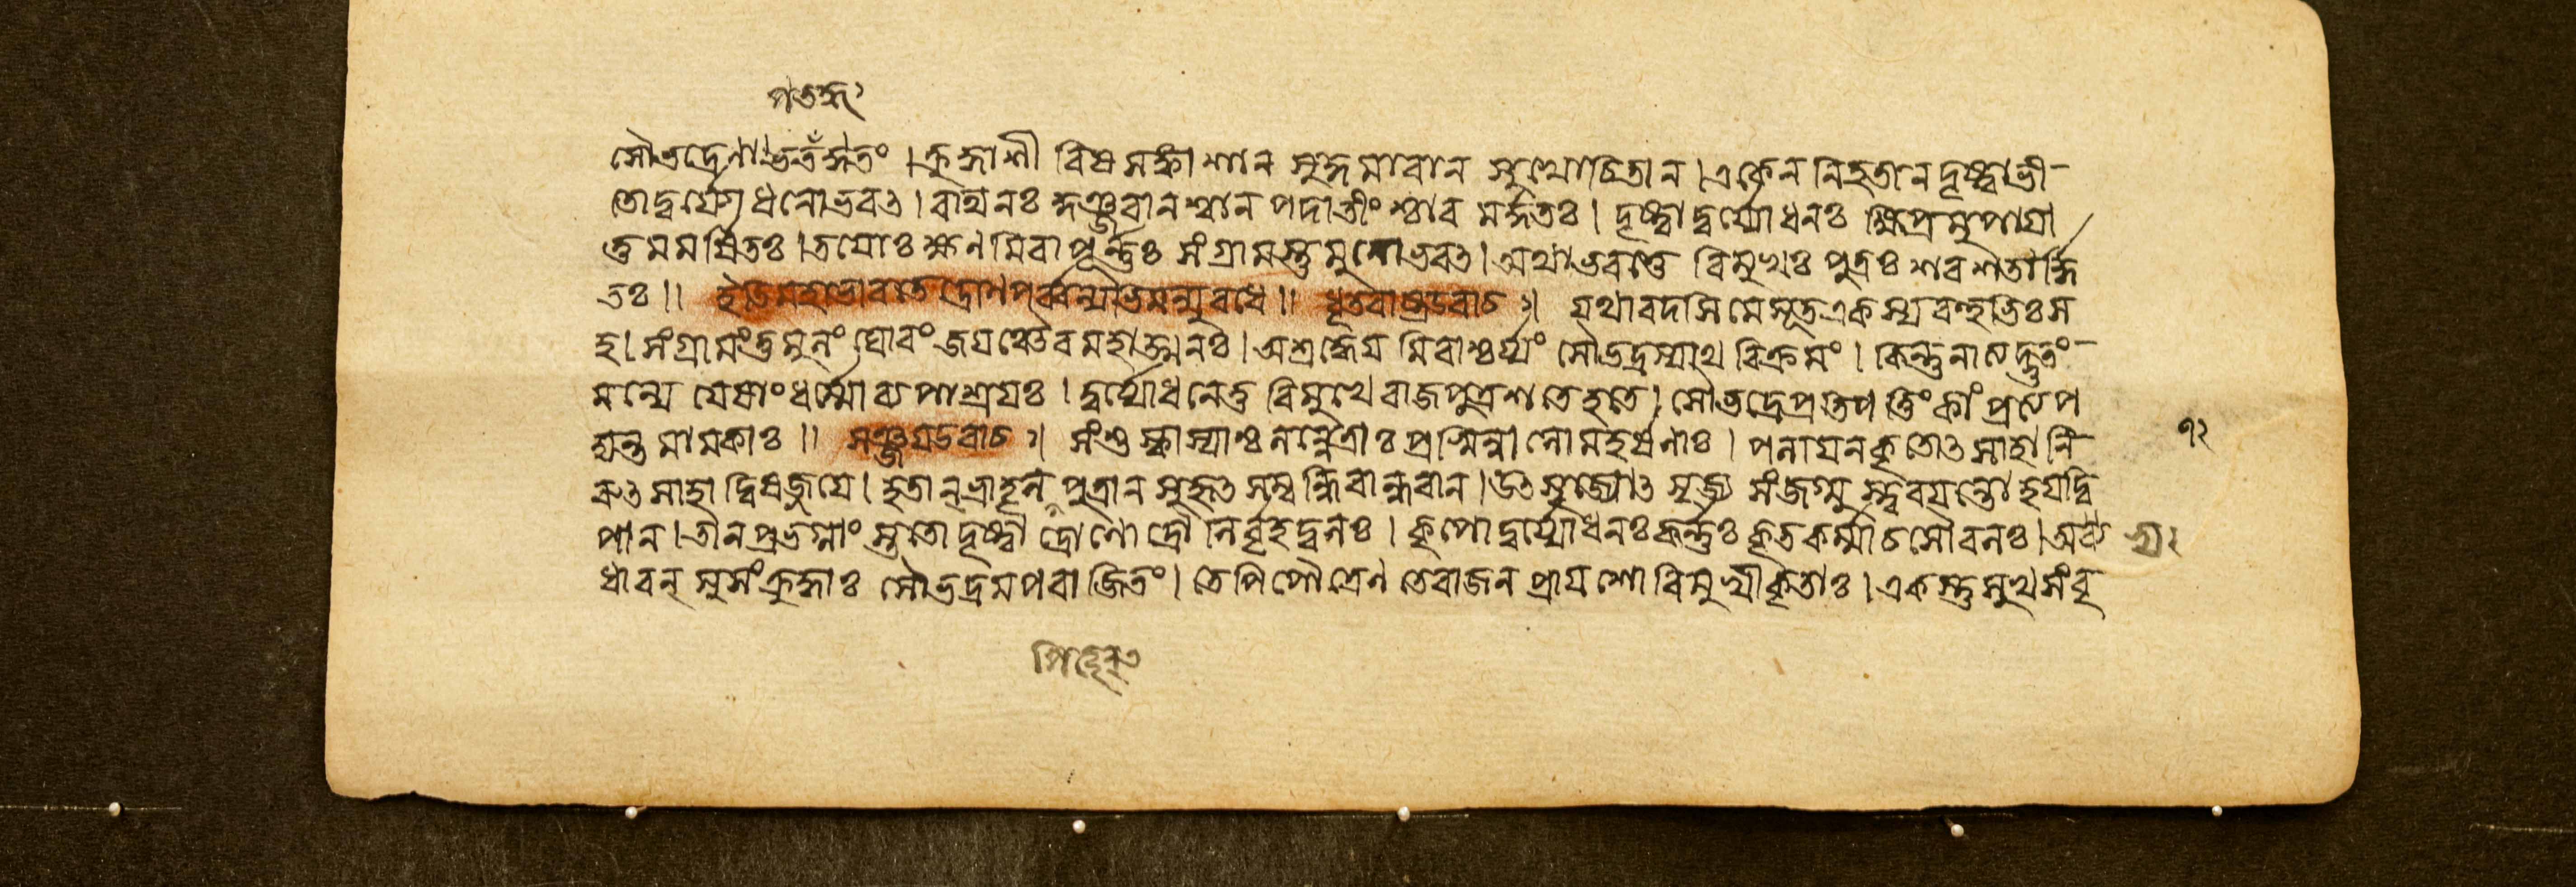 সৌভদ্রেণাভিতঁহতং । ক্রুদ্ধাশী বিষ সঙ্কাশান সুকুমাবান সুখোচিতান । একেন নিহতান দৃষ্ট্বাভী-
তোদুর্যোধনোভবত । বাথিনঃ কুঞ্জবানশ্বান পদাতীংশ্চাব মর্দ্দিতঃ । দৃষ্ট্বা দুর্য্যোধনঃ ক্ষিপ্রমুপাযা
ত্তমমর্ষিতঃ । তযোঃ ক্ষণমিবাপূর্ন্নঃ সংগ্রামস্তুমুলোভবত । অথাভবত্তে বিমুখঃ পুত্রঃ শব শতার্দ্দি
তঃ ॥ ইতিমহাভাবতে দ্রোণপর্ব্বন্যভিমন্যুবধে ॥ ধৃতবাষ্ট্রউবাচ ।
যথাবদসি মে সূতএকস্য বহুভিঃ স
হ । সংগ্রামংতুমুলং ঘোবংজযঞ্চৈব মহাত্মনঃ । অশ্রদ্ধেয মিবাশ্চর্য্যং সৌভদ্রস্যাথ বিক্রমং । কিন্তুনাত্যদ্ভুতং-
মন্যে যেষাংধর্ম্মোব্যপাশ্রযঃ । দুর্য্যোধনেতু বিমুখেবাজপুত্রশতেহতে । সৌভদ্রেপ্রতিপত্তিংকাং প্রত্যপ
দ্যন্ত মামকাঃ ॥ সঞ্জযউবাচ । সংশুস্কাস্যাশ্চলন্নেত্রাঃ প্রস্বিন্না লোমহর্ষণাঃ । পলাযনকৃতোৎসাহা নি-
রুৎসাহা দ্বিষজ্জযে । হতান্ ভ্রাতৃন্ পুত্রান সুহৃৎ সম্বন্ধিবান্ধবান । উৎসৃজ্যোৎসৃজ্য সংজগ্মু স্ত্ববযন্তো হযদ্বি
পান । তানপ্রভগ্নাং স্তুতো দৃষ্ট্বা দ্রোণো দ্রৌনির্বৃহদ্বলঃ । কৃপো দুর্য্যোধনঃ কর্ন্নঃ কৃতকর্ম্মাচসৌবলঃ । অব্য
ধাবন্ সুসংক্রুদ্ধাঃ সৌভদ্রমপবাজিতং । তেপিপৌত্রেণ তেবাজন প্রাযশো বিমুখীকৃতাঃ । একস্তুসুখসংবৃ
৭২